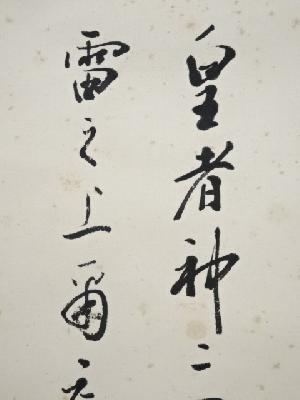 皇者神二
雷之上爾